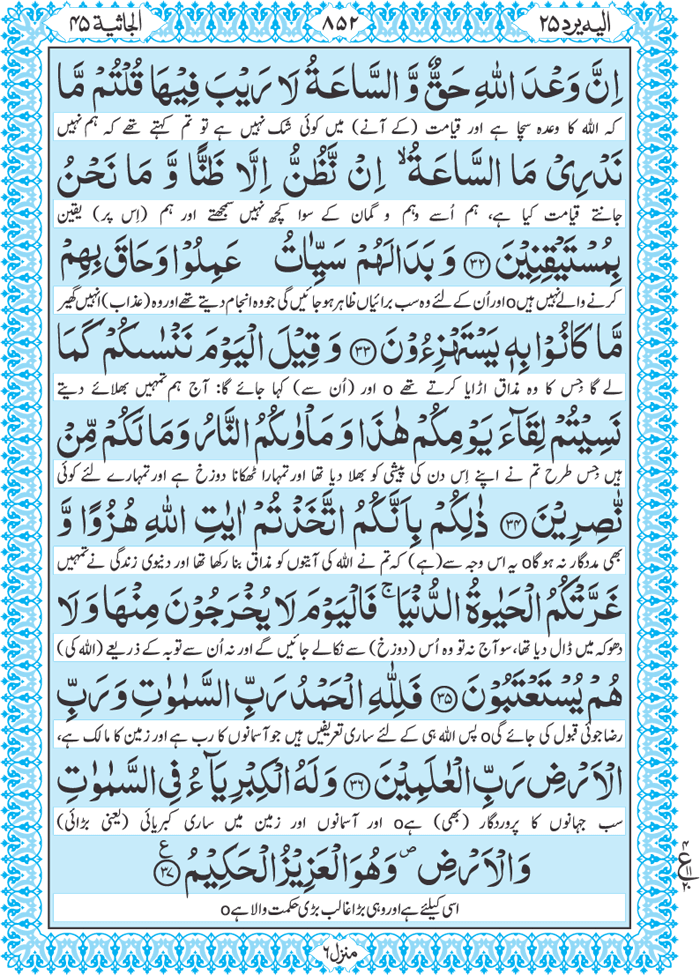 الیہ یرد ۲۵
۸۵۲
الجاثیة ۴۵
اِنَّ وَعْدَ اللّٰهِ حَقٌّ وَّ السَّاعَةُ لَا رَیْبَ فِیْهَا قُلْتُمْ مَّا
کہ اللہ کا وعدہ سچا ہے اور قیامت (کے آنے) میں کوئی شک نہیں ہے تو تم کہتے تھے کہ ہم نہیں
نَدْرِیْ مَا السَّاعَةُ ۙ اِنْ نَّظُنُّ اِلَّا ظَنًّا وَّ مَا نَحْنُ
جانتے قیامت کیا ہے، ہم اُسے وہم و گمان کے سوا کچھ نہیں سمجھتے اور ہم (اِس پر) یقین
بِمُسْتَیْقِنِیْنَ ﴿۳۲﴾ وَ بَدَا لَهُمْ سَیِّاٰتُ عَمِلُوْا وَحَاقَ بِهِمْ
کرنے والے نہیں ہیں o اور اُن کے لئے وہ سب برائیاں ظاہر ہو جائیں گی جو وہ انجام دیتے تھے اور وہ (عذاب) انہیں گھیر
مَّا كَانُوْا بِهٖ یَسْتَهْزِءُوْنَ ﴿۳۳﴾ وَ قِیْلَ الْیَوْمَ نَنْسٰىكُمْ كَمَا
لے گا جس کا وہ مذاق اڑایا کرتے تھے o اور (اُن سے) کہا جائے گا: آج ہم تمہیں بھلائے دیتے
نَسِیْتُمْ لِقَآءَ یَوْمِكُمْ هٰذَا وَ مَاْوٰىكُمُ النَّارُ وَ مَا لَكُمْ مِّنْ
ہیں جس طرح تم نے اپنے اِس دن کی پیشی کو بھلا دیا تھا اور تمہارا ٹھکانا دوزخ ہے اور تمہارے لئے کوئی
نّٰصِرِیْنَ ﴿۳۴﴾ ذٰلِكُمْ بِاَنَّكُمُ اتَّخَذْتُمْ اٰیٰتِ اللّٰهِ هُزُوًا وَّ
بھی مددگار نہ ہو گا o یہ اس وجہ سے (ہے) کہ تم نے اللہ کی آیتوں کو مذاق بنا رکھا تھا اور دنیوی زندگی نے تمہیں
غَرَّتْكُمُ الْحَیٰوةُ الدُّنْیَا ۚ فَالْیَوْمَ لَا یُخْرَجُوْنَ مِنْهَا وَ لَا
دھوکہ میں ڈال دیا تھا، سو آج نہ تو وہ اُس (دوزخ) سے نکالے جائیں گے اور نہ اُن سے توبہ کے ذریعے (اللہ کی)
هُمْ یُسْتَعْتَبُوْنَ ﴿۳۵﴾ فَلِلّٰهِ الْحَمْدُ رَبِّ السَّمٰوٰتِ وَ رَبِّ
رضا جوئی قبول کی جائے گی o پس اللہ ہی کے لئے ساری تعریفیں ہیں جو آسمانوں کا رب ہے اور زمین کا مالک ہے،
الْاَرْضِ رَبِّ الْعٰلَمِیْنَ ﴿۳۶﴾ وَ لَهُ الْكِبْرِیَآءُ فِی السَّمٰوٰتِ
سب جہانوں کا پروردگار (بھی) ہے o اور آسمانوں اور زمین میں ساری کبریائی (یعنی بڑائی)
وَ الْاَرْضِ ۪ وَ هُوَ الْعَزِیْزُ الْحَكِیْمُ ﴿۳۷﴾ ع
اسی کیلئے ہے اور وہی بڑا غالب بڑی حکمت والا ہے o
منزل ۶